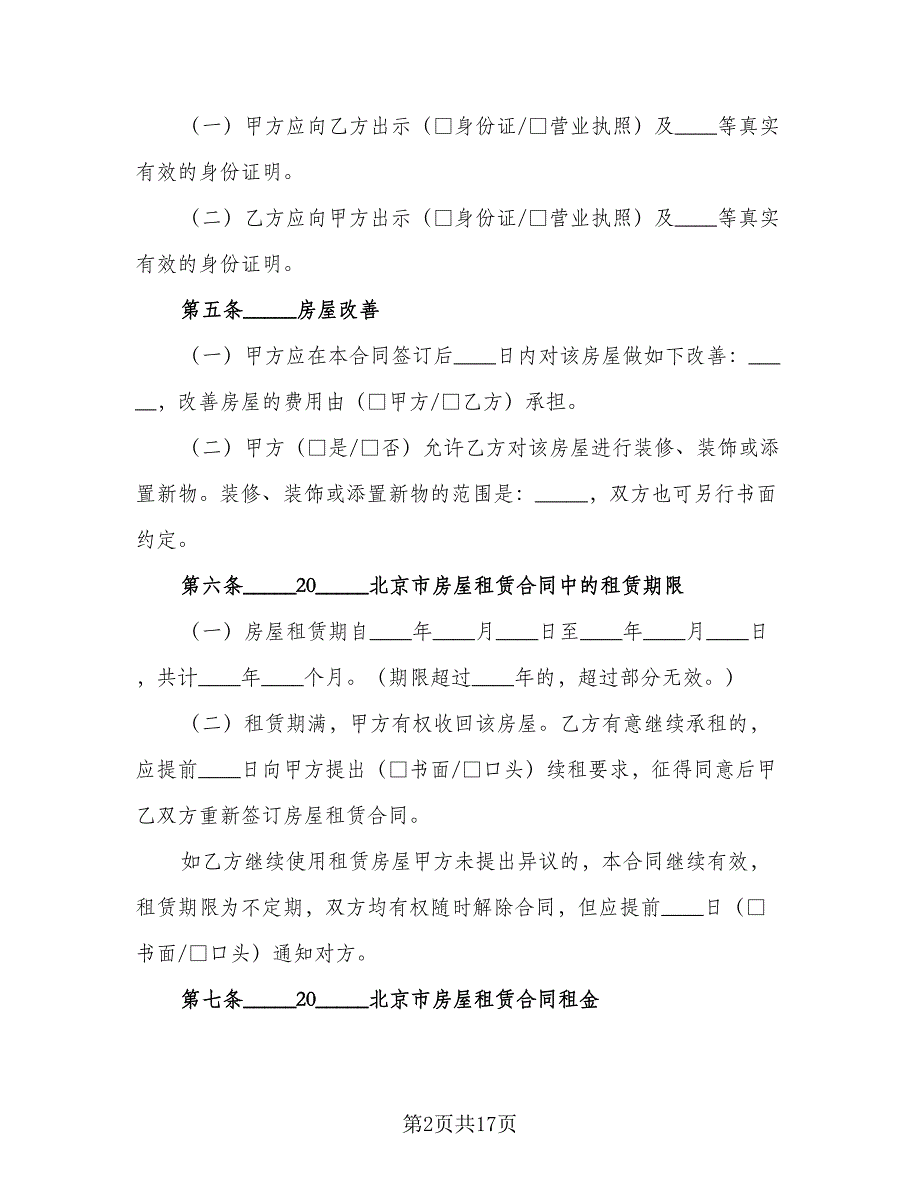 （一）甲方应向乙方出示（□身份证/□营业执照）及____等真实
有效的身份证明。
（二）乙方应向甲方出示（□身份证/□营业执照）及____等真实
有效的身份证明。
第五条_____房屋改善
（一）甲方应在本合同签订后____日内对该房屋做如下改善：___
__，改善房屋的费用由（□甲方/□乙方）承担。
（二）甲方（□是/□否）允许乙方对该房屋进行装修、装饰或添
置新物。装修、装饰或添置新物的范围是：_____，双方也可另行书面
约定。
第六条_____20_____北京市房屋租赁合同中的租赁期限
（一）房屋租赁期自____年____月____日至____年____月____日
，共计____年____个月。（期限超过____年的，超过部分无效。）
（二）租赁期满，甲方有权收回该房屋。乙方有意继续承租的，
应提前____日向甲方提出（□书面/□口头）续租要求，征得同意后甲
乙双方重新签订房屋租赁合同。
如乙方继续使用租赁房屋甲方未提出异议的，本合同继续有效，
租赁期限为不定期，双方均有权随时解除合同，但应提前____日（□
书面/□口头）通知对方。
第七条_____20_____北京市房屋租赁合同租金
第2页共17页